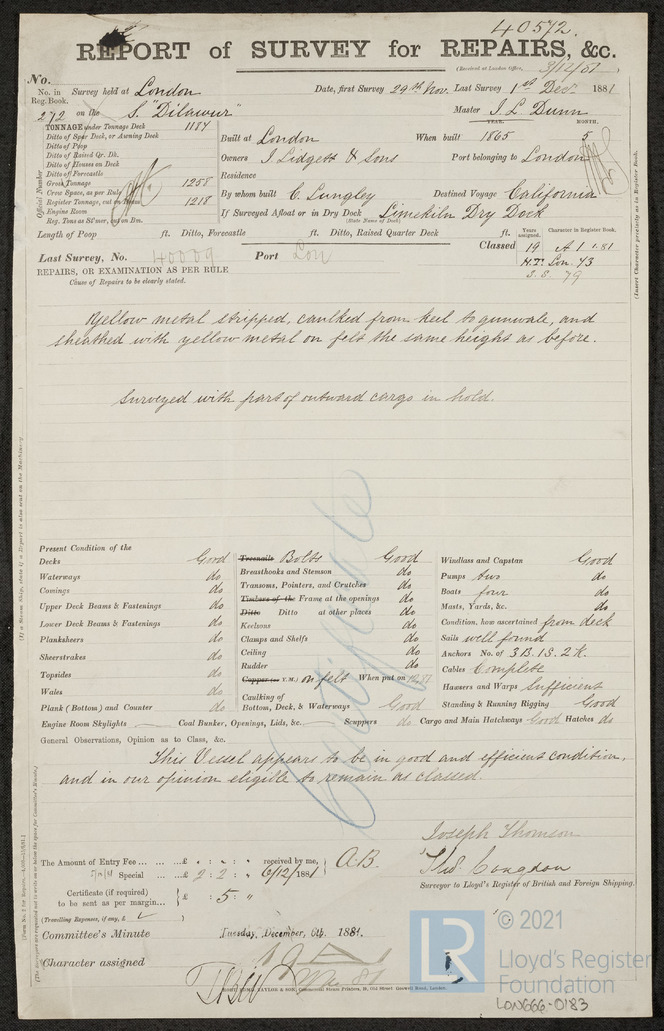 40572.
REPORT of SURVEY for REPAIRS, &c.
(Received at London Office, 3/12/81
No.
No. in Reg. Book. Survey held at London Date, first Survey 29th Nov. Last Survey 1st Decr 1881
272 on the S. "Dilawur" Master J. L. Dunn
TONNAGE under Tonnage Deck 1187
YEAR. MONTH.
Ditto of Spar Deck, or Awning Deck
Built at London When built 1865 5
Ditto of Poop
Ditto of Raised Qr. Dk.
Owners J Lidgett & Sons Port belonging to London
Ditto of Houses on Deck
Ditto of Forecastle
Residence
Gross Tonnage 1258
Crew Space, as per Rule
By whom built C. Lungley Destined Voyage California
Register Tonnage, cut on Beam 1218
Engine Room
If Surveyed Afloat or in Dry Dock Limekiln Dry Dock
(State Name of Dock)
Reg. Tons as St'mer, cut on Bm.
Official Number
Length of Poop ft. Ditto, Forecastle ft. Ditto, Raised Quarter Deck ft.
Years assigned. Character in Register Book.
Classed 19 A 1 1.81
Last Survey, No. 40009 Port Lon
H.T. Lon. 73
S. S. 79
REPAIRS, OR EXAMINATION AS PER RULE
Cause of Repairs to be clearly stated.
Yellow metal stripped, caulked from keel to gunwale, and
sheathed with yellow metal on felt the same height as before.
Surveyed with part of outward cargo in hold.
Certificate
Present Condition of the
Decks Good
Waterways do
Comings do
Upper Deck Beams & Fastenings do
Lower Deck Beams & Fastenings do
Planksheers do
Sheerstrakes do
Topsides do
Wales do
Plank (Bottom) and Counter do
Treenails Bolts Good
Breasthooks and Stemson do
Transoms, Pointers, and Crutches do
Timbers of the Frame at the openings do
Ditto Ditto at other places do
Keelsons do
Clamps and Shelfs do
Ceiling do
Rudder do
Copper (or Y.M.) on felt When put on 12.81
Caulking of
Bottom, Deck, & Waterways Good
Windlass and Capstan Good
Pumps two do
Boats four do
Masts, Yards, &c. do
Condition, how ascertained from deck
Sails well found
Anchors No. of 3 B. 1 S. 2 K.
Cables Complete
Hawsers and Warps Sufficient
Standing & Running Rigging Good
Engine Room Skylights Coal Bunker, Openings, Lids, &c. Scuppers do Cargo and Main Hatchways Good Hatches do
General Observations, Opinion as to Class, &c.
This Vessel appears to be in good and efficient condition,
and in our opinion eligible to remain as classed.
Joseph Thomson
Thos Congdon
Surveyor to Lloyd's Register of British and Foreign Shipping.
The Amount of Entry Fee ... £ : : received by me,
Special ... £ 2 : 2 : " 6/12/1881 A.B.
Certificate (if required) to be sent as per margin... £ : 5 : "
(Travelling Expenses, if any, £ )
Committee's Minute Tuesday, December, 6th, 1881.
Character assigned
© 2021
LR
Lloyd's Register
Foundation
LON666-0183
(Insert Character precisely as in Register Book.
(If a Steam Ship, state if a Report is also sent on the Machinery.